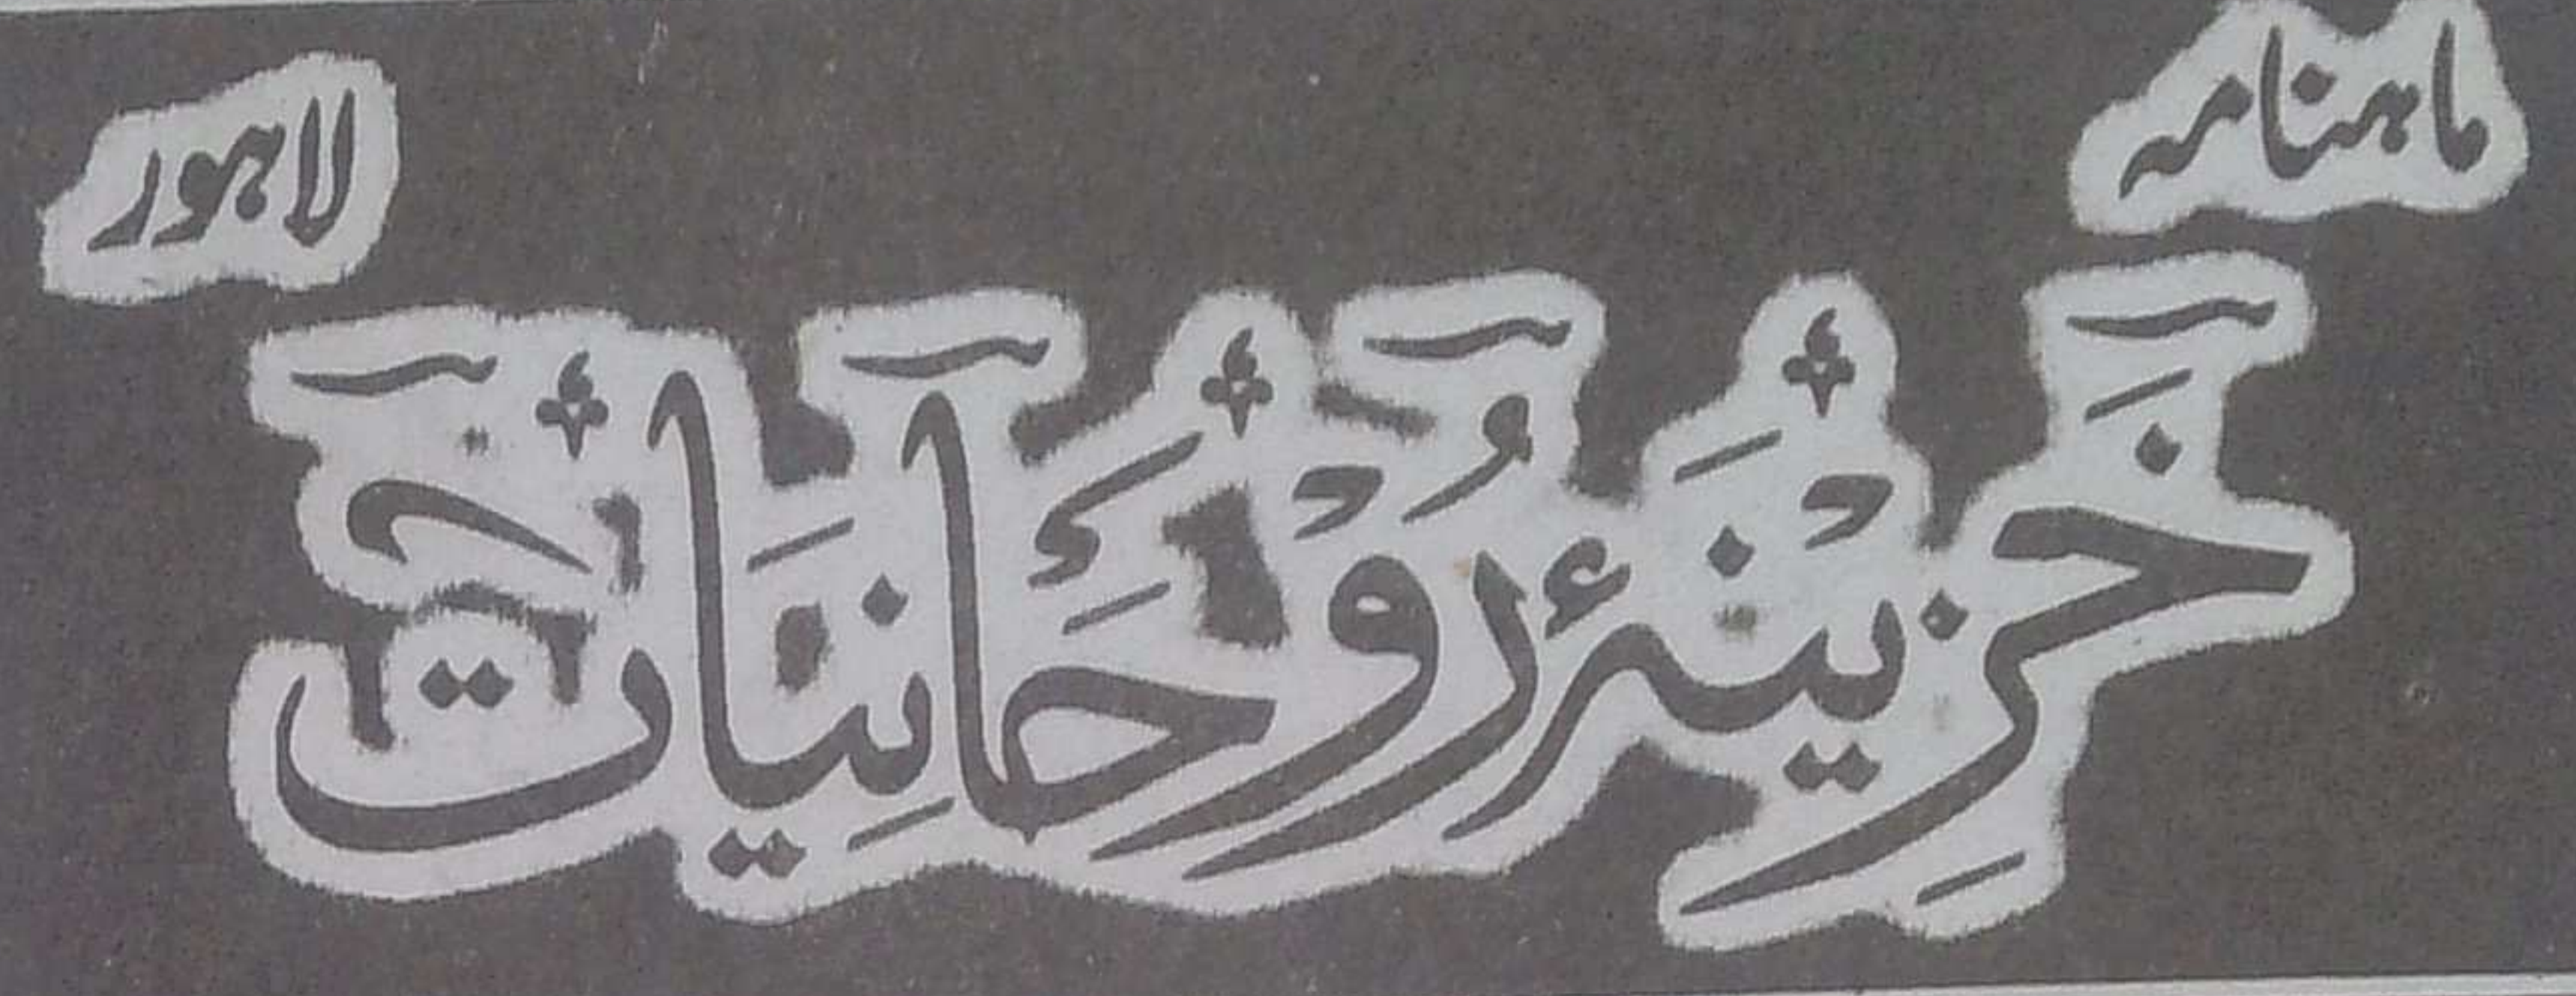 ماہنامہ
لاہور
خَزِیْنَۂ رُوْحَانِیَات